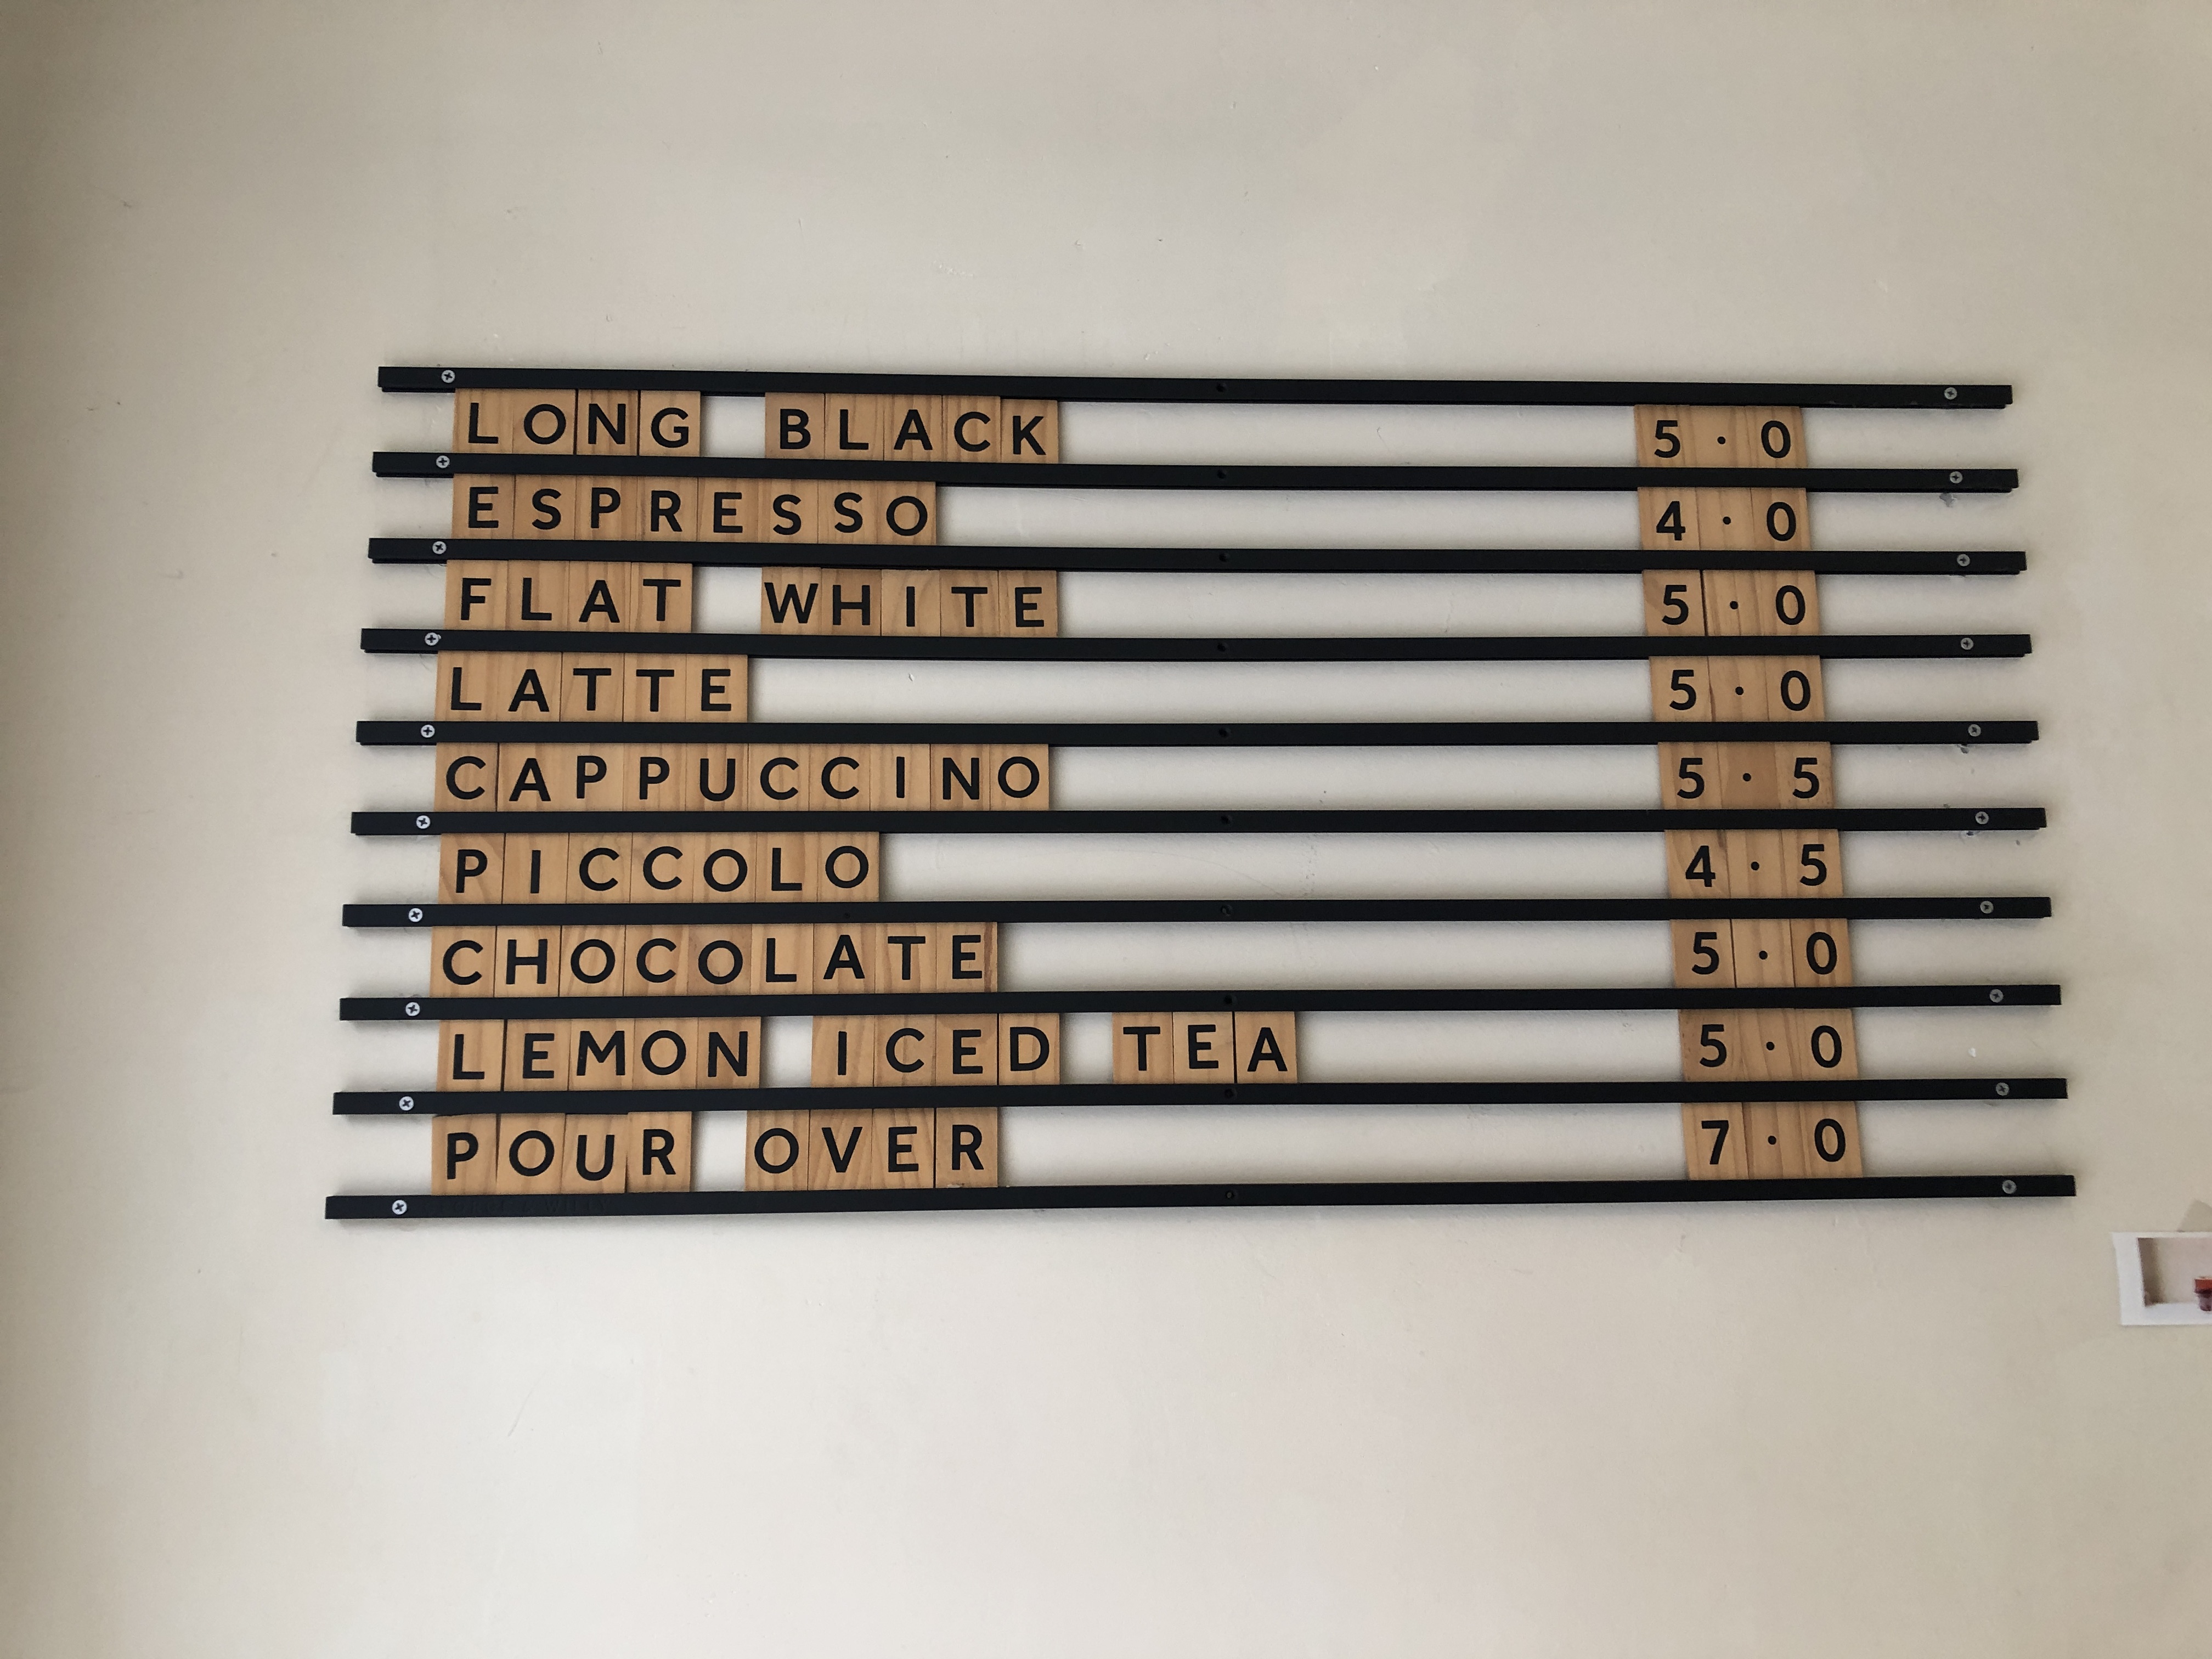 LONG BLACK 5.0
ESPRESSO 4.0
FLAT WHITE 5.0
LATTE 5.0
CAPPUCCINO 5.5
PICCOLO 4.5
CHOCOLATE 5.0
LEMON ICED TEA 5.0
POUR OVER 7.0